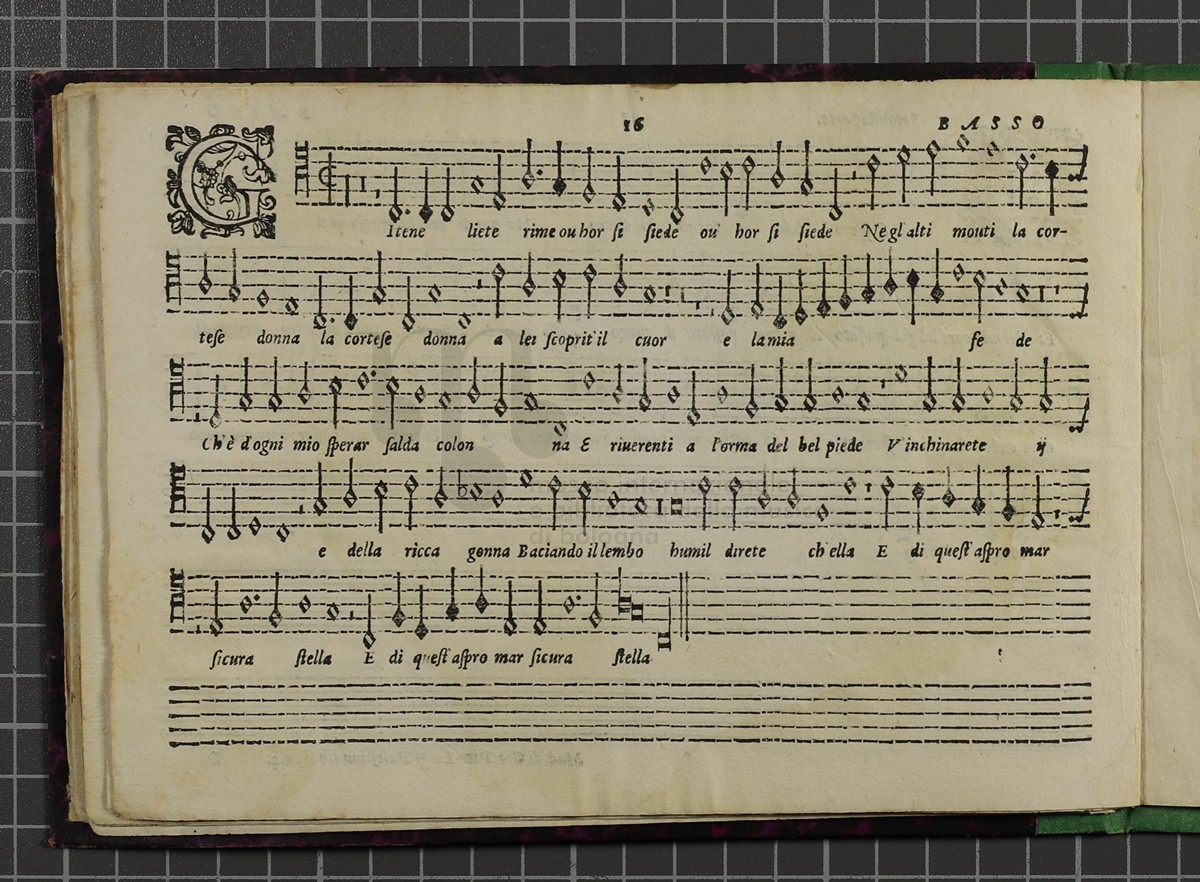 16 BASSO
GItene liete rime ou hor si siede ou' hor si siede Negl'alti monti la cor-
tese donna la cortese donna a lei scoprit'il cuor e la mia fe de
Ch'è d'ogni mio sperar salda colon na E riuerenti a l'orma del bel piede V'inchinarete ij
e della ricca gonna Baciando il lembo humil direte ch'ella E di quest'aspro mar
sicura stella E di quest'aspro mar sicura stella
di bologna